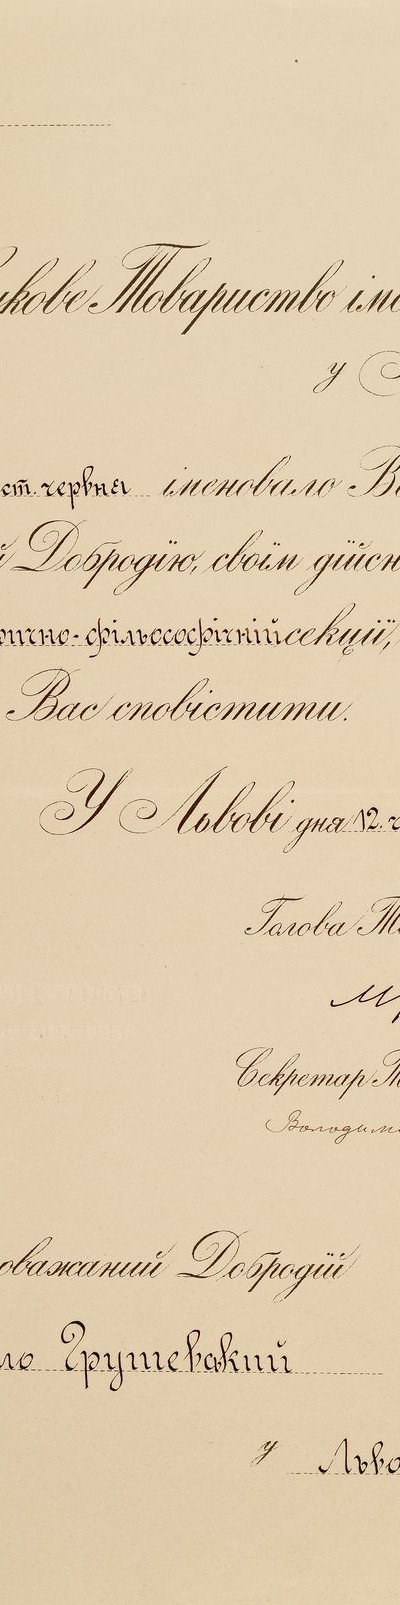 кове Товариство іме
у
ст. червня іменовало В
й Добродїю, своїм дїйсн
рично-фільософічній секциї,
Вас сповістити.
У Львові дня 12. ч
Голова Т
М
Секретар Т
Володими
оважаний Добродїй
ло Грушевский
у Льво